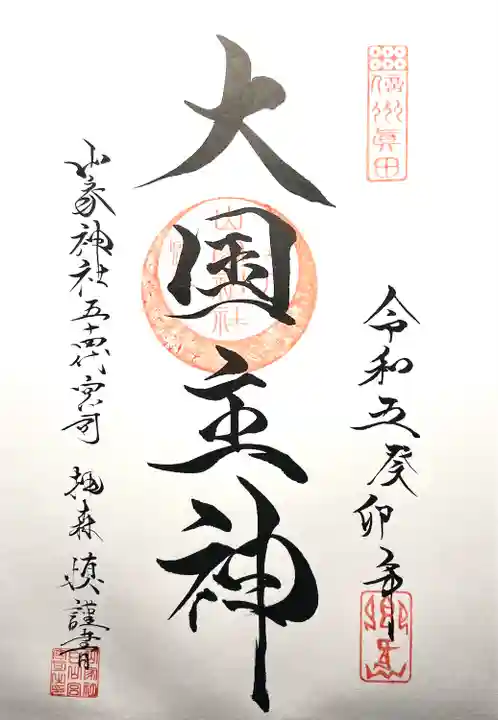 信州真田
令和五癸卯年
大国主神
山家神社五十四代宮司 押森 慎謹書